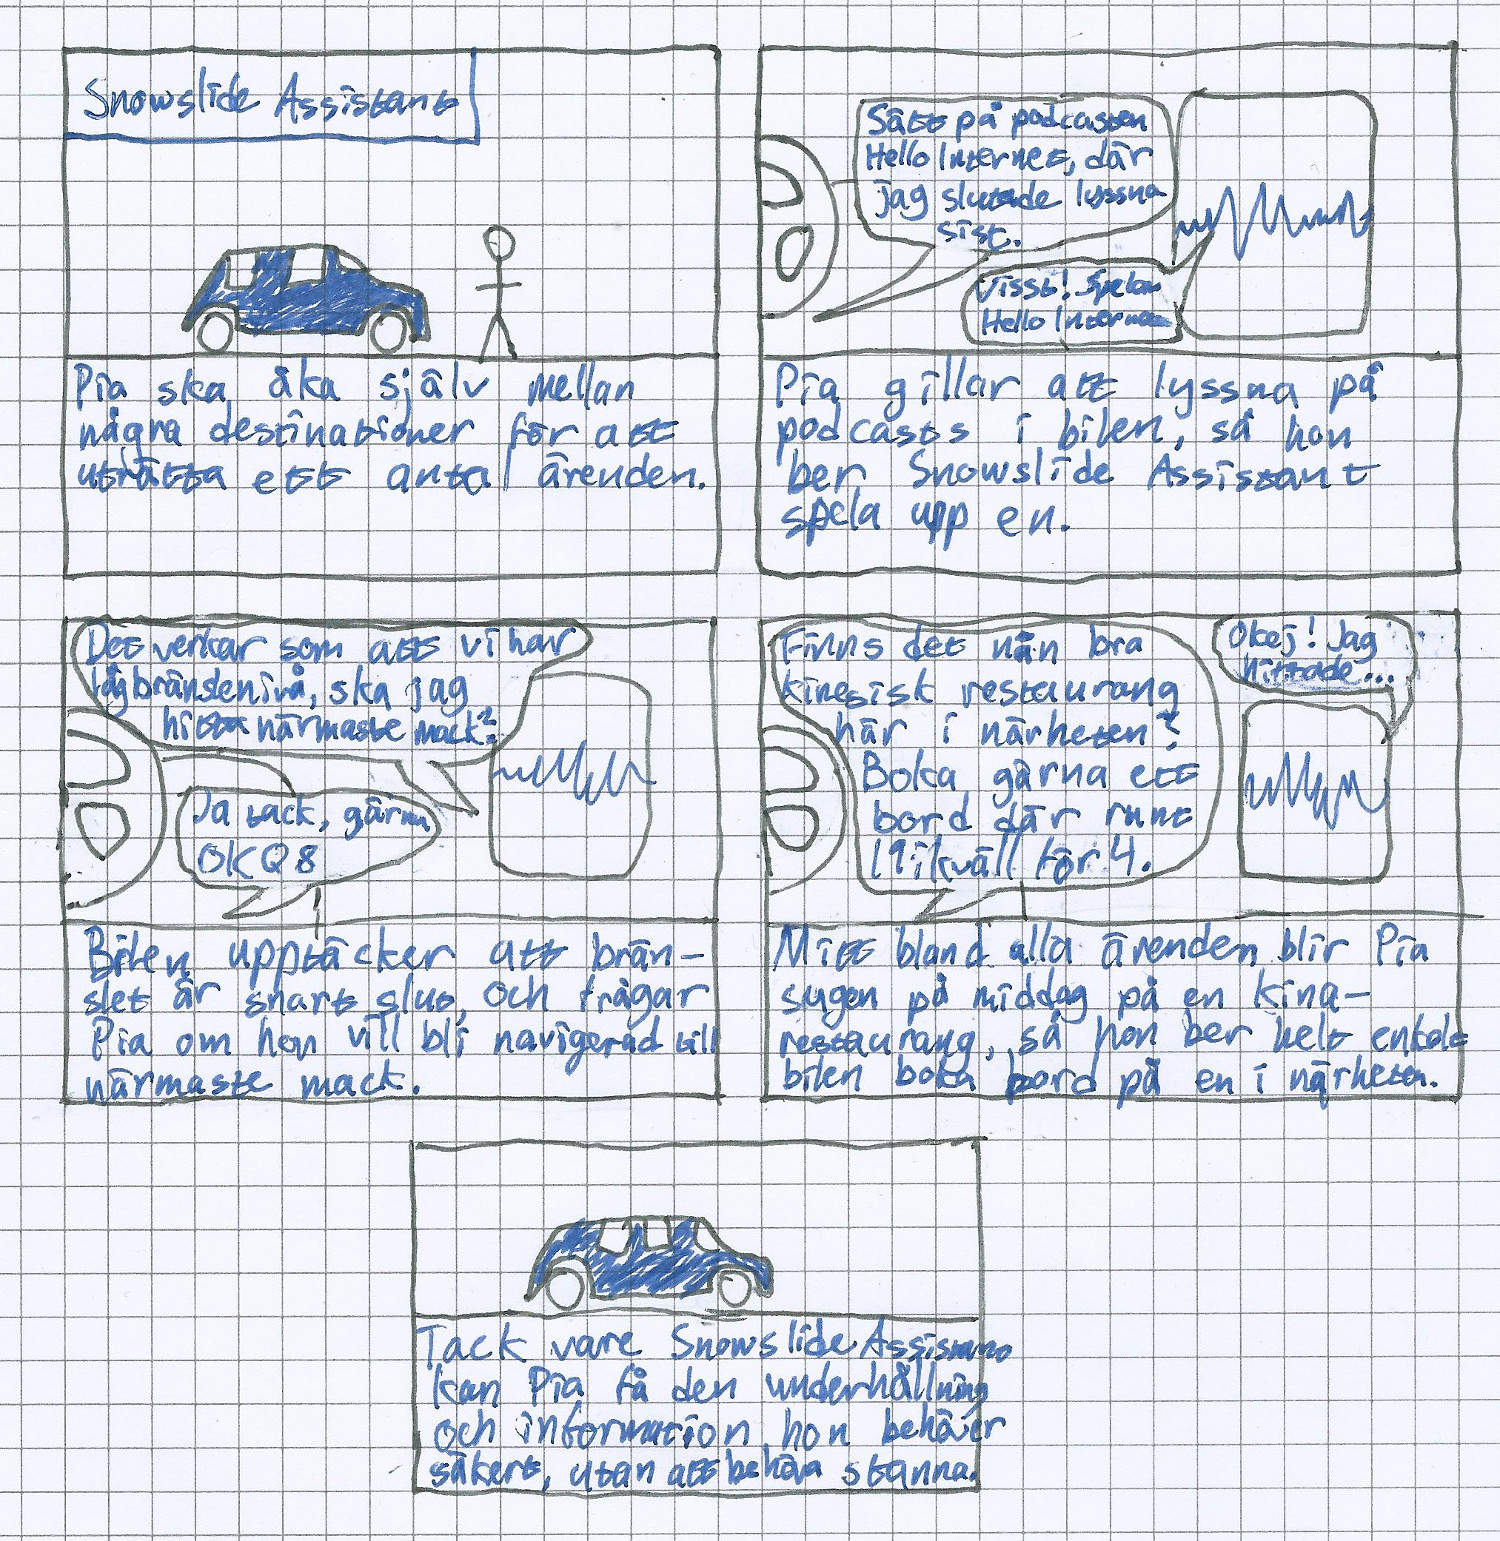 Snowslide Assistant
Pia ska åka själv mellan
några destinationer för att
uträtta ett antal ärenden.
Sätt på podcasten
Hello Internet, där
jag slutade lyssna
sist.
Visst! Spelar
Hello Internet
Pia gillar att lyssna på
podcasts i bilen, så hon
ber Snowslide Assistant
spela upp en.
Det verkar som att vi har
låg bränslenivå, ska jag
hitta närmaste mack?
Ja tack, gärna
OKQ8
Bilen upptäcker att brän-
slet är snart slut, och frågar
Pia om hon vill bli navigerad till
närmaste mack.
Finns det nån bra
kinesisk restaurang
här i närheten?
Boka gärna ett
bord där runt
19 ikväll för 4.
Okej! Jag
hittade...
Mitt bland alla ärenden blir Pia
sugen på middag på en kina-
restaurang, så hon ber helt enkelt
bilen boka bord på en i närheten.
Tack vare Snowslide Assistant
kan Pia få den underhållning
och information hon behöver
säkert, utan att behöva stanna.